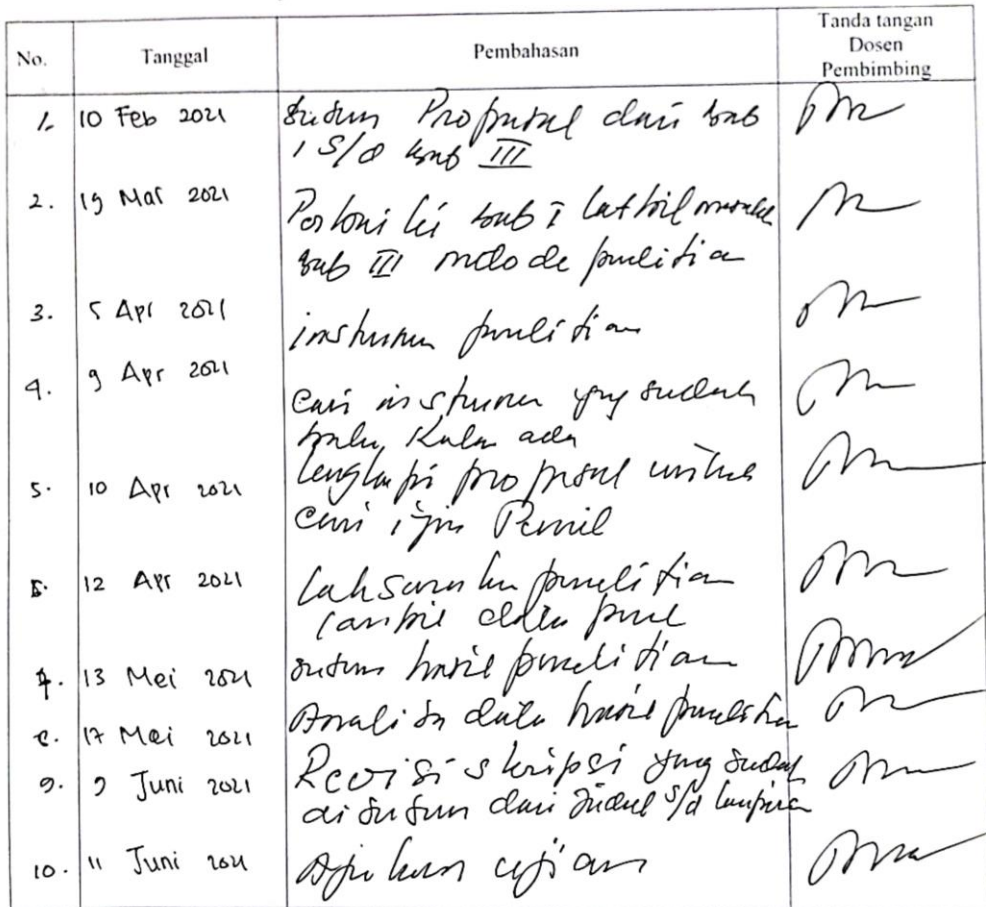 No. Tanggal Pembahasan Tanda tangan
Dosen
Pembimbing
1. 10 Feb 2021 Susun Proposal dari bab
1 S/d bab III
2. 19 Mar 2021 Perbaiki bab I latbil masalah
bab III metode penelitian
3. 5 Apr 2021 instrumen penelitian
4. 9 Apr 2021 Cari instrumen yng sudah
baku, Kalau ada
5. 10 Apr 2021 Lengkapi proposal untuk
cari ijin Penel
6. 12 Apr 2021 Laksanakan penelitian
(ambil data penel
7. 13 Mei 2021 susun hasil penelitian
8. 17 Mei 2021 Analisa data hasil penelitian
9. 9 Juni 2021 Revisi skripsi yang sudah
di susun dari judul s/d lampiran
10. 11 Juni 2021 Ajukan ujian